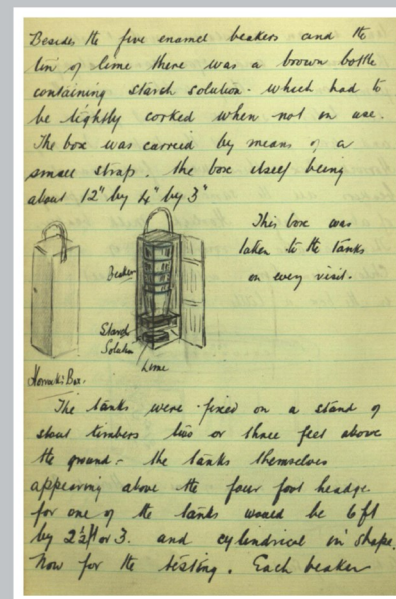 Besides the five enamel beakers and the
tin of lime there was a brown bottle
containing starch solution - which had to
be tightly corked when not in use.
The box was carried by means of a
small strap. the box itself being
about 12" by 4" by 3"
This box was
taken to the tanks
on every visit.
Beaker
Starch
Solution
Lime
Horrocks Box.
The tanks were fixed on a stand of
stout timbers two or three feet above
the ground - the tanks themselves
appearing above the four foot headge.
for one of the tanks would be 6ft
by 2½ft or 3. and cylindrical in shape.
Now for the testing. Each beaker